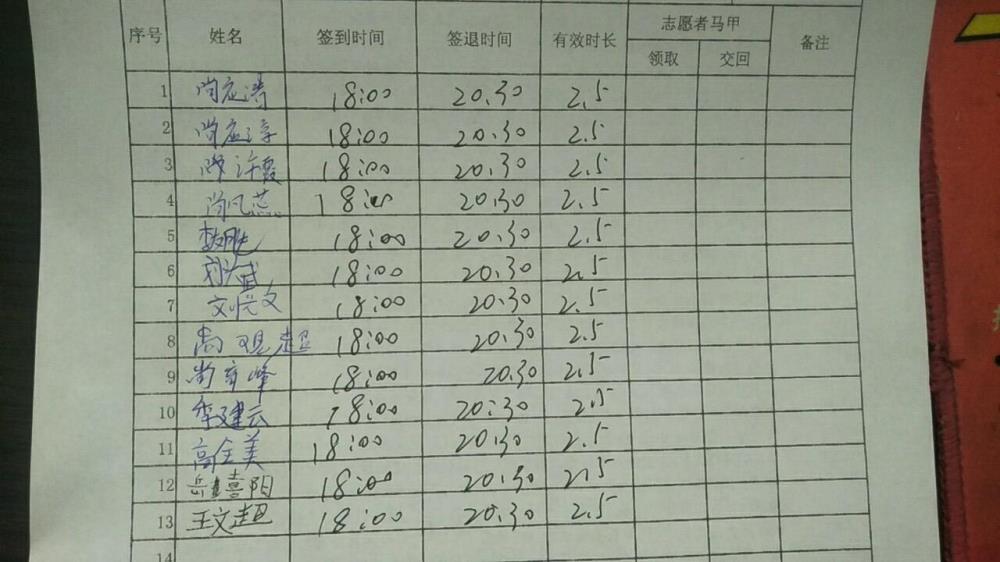 序号 姓名 签到时间 签退时间 有效时长 志愿者马甲 备注
领取 交回
1 尚应涛 18:00 20.30 2.5
2 尚应淳 18:00 20.30 2.5
3 许霞 18:00 20.30 2.5
4 尚凡燕 18:00 20:30 2.5
5 18:00 20.30 2.5
6 刘兴武 18:00 20.30 2.5
7 刘悦文 18:00 20.30 2.5
8 高现超 18:00 20.30 2.5
9 尚育峰 18:00 20.30 2.5
10 李建云 18:00 20:30 2.5
11 高全美 18:00 20.30 2.5
12 岳喜阳 18:00 20.30 2.5
13 王文超 18:00 20.30 2.5
14